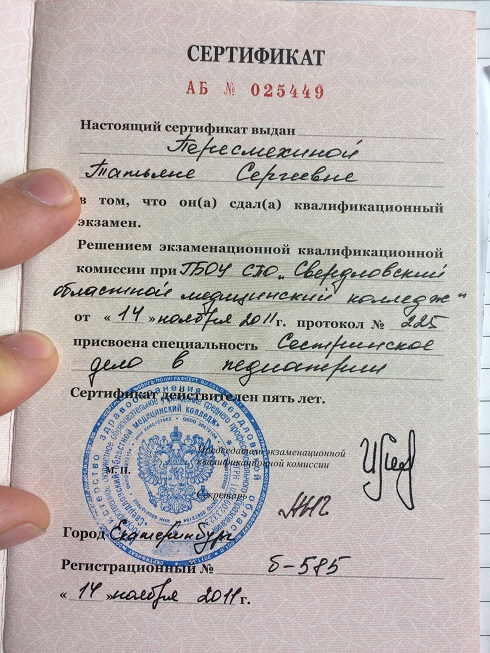 СЕРТИФИКАТ
АБ № 025449
Настоящий сертификат выдан
Пересмехиной
Татьяне Сергеевне
в том, что он(а) сдал(а) квалификационный
экзамен.
Решением экзаменационной квалификационной
комиссии при ГБОУ СПО „Свердловский
областной медицинский колледж“
от « 14 » ноября 2011 г. протокол № 225
присвоена специальность Сестринское
дело в педиатрии
Сертификат действителен пять лет.
Председатель экзаменационной
квалификационной комиссии
М. П.
Секретарь
Город Екатеринбург
Регистрационный № б-585
« 14 » ноября 2011 г.